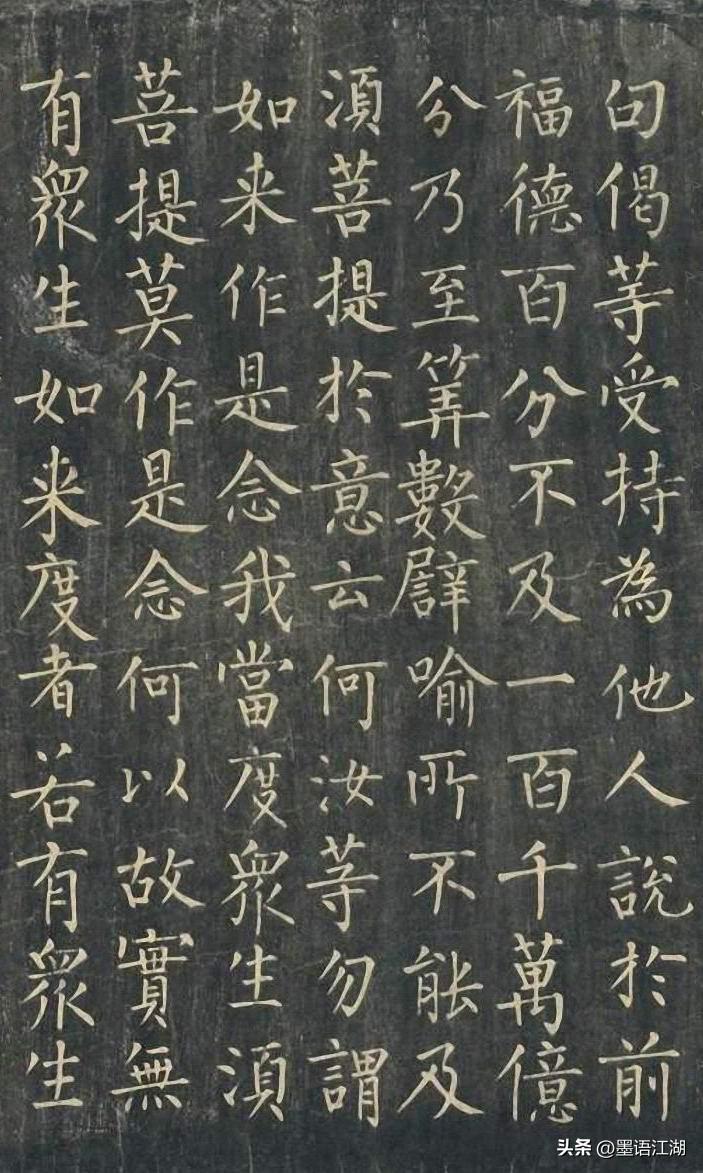 句偈等受持為他人說於前
福德百分不及一百千萬億
分乃至筭數譬喻所不能及
湏菩提於意云何汝等勿謂
如来作是念我當度眾生湏
菩提莫作是念何以故實無
有眾生如来度者若有眾生
头条 @墨语江湖